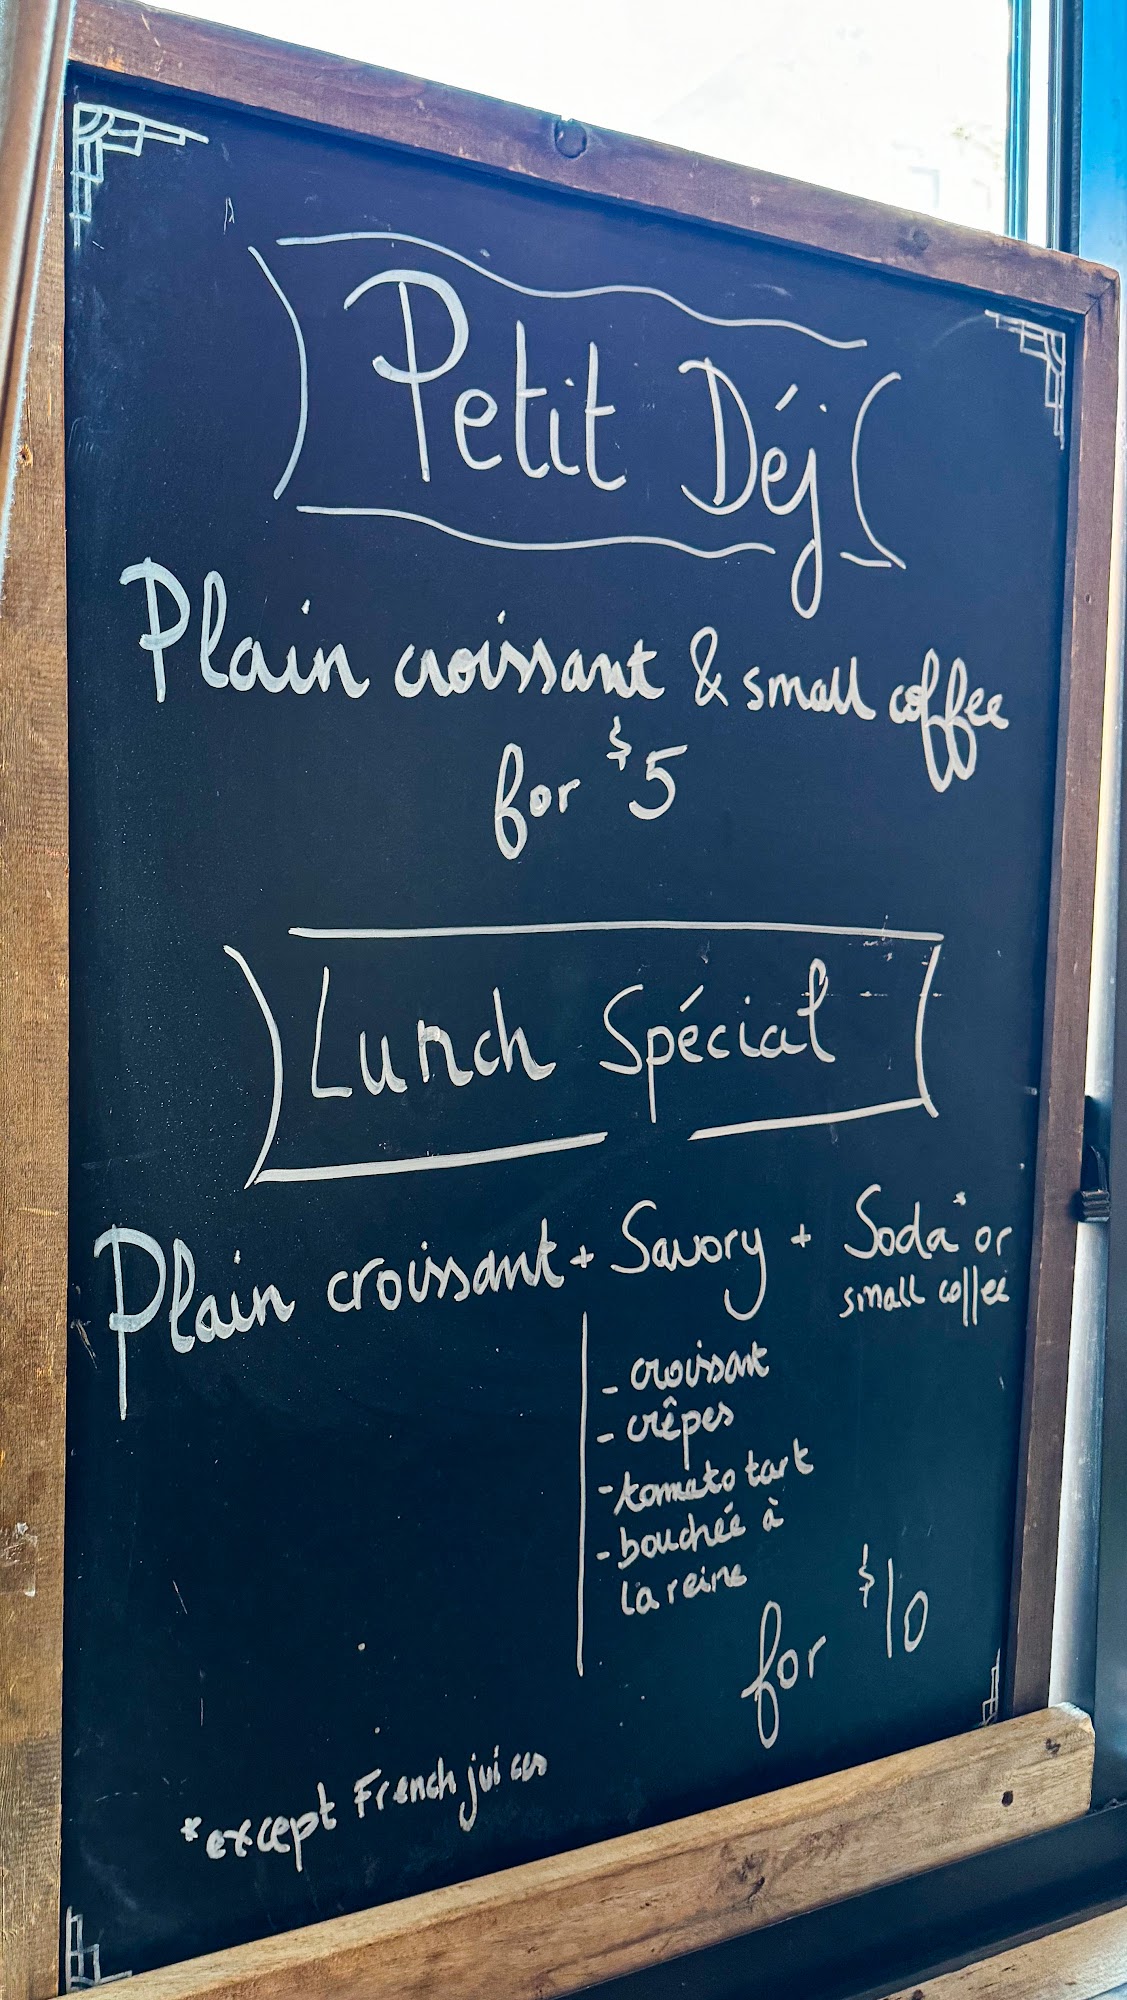 Petit Déj
Plain croissant & small coffee
for $5
Lunch Spécial
Plain croissant + Savory + Soda* or
small coffee
- croissant
- crêpes
- tomato tart
- bouchée à
la reine
for $10
*except French juices